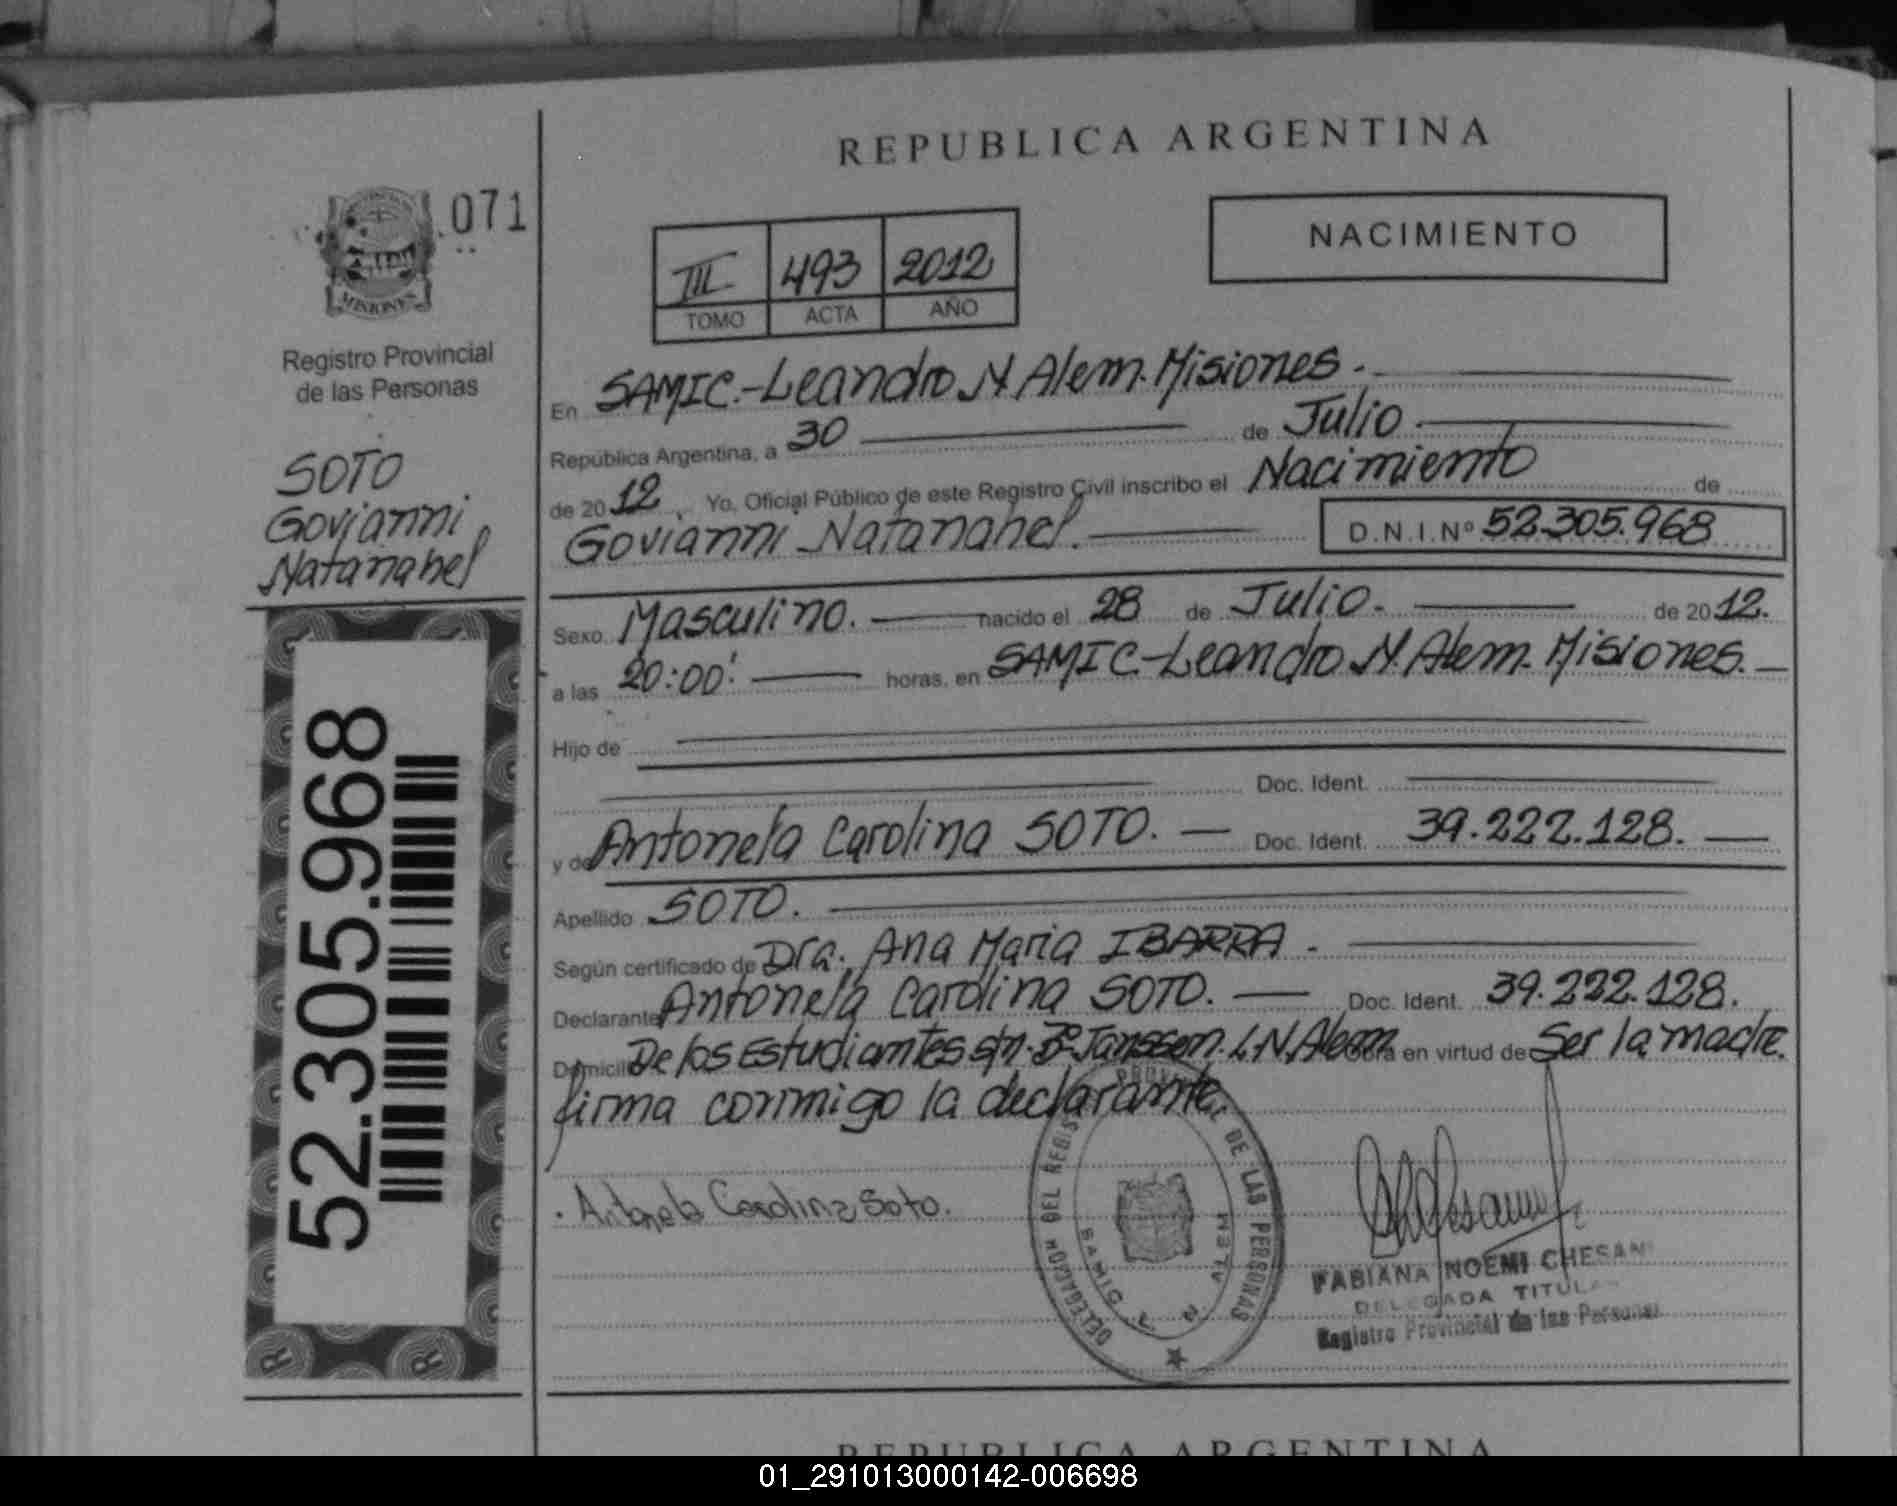 REPUBLICA ARGENTINA
071
MISIONES
Registro Provincial
de las Personas
SOTO
Govianni
Natanahel
52.305.968
III 493 2012
TOMO ACTA AÑO
NACIMIENTO
En SAMIC.-Leandro N Alem. Misiones.
República Argentina, a 30 de Julio
de 2012. Yo, Oficial Público de este Registro Civil inscribo el Nacimiento de
Govianni Natanahel. D.N.I.Nº 52.305.968
Sexo Masculino. nacido el 28 de Julio. de 2012.
a las 20:00' horas, en SAMIC-Leandro N. Alem. Misiones.
Hijo de
Doc. Ident.
y de Antonela Carolina SOTO. Doc. Ident. 39.222.128.
Apellido SOTO.
Según certificado de Dra. Ana Maria IBARRA.
Declarante Antonela Carolina SOTO. Doc. Ident. 39.222.128.
Domicilio De los Estudiantes s/n. Bº Janssen. L.N. Alem Obra en virtud de Ser la madre.
firma conmigo la declarante
. Antonela Carolina Soto.
DELEGACION DEL REGIS PROV L DE LAS PERSONAS
SAMIC
FABIANA NOEMI CHESANI
DELEGADA TITULAR
Registro Provincial de las Personas
REPUBLICA ARGENTINA
01_291013000142-006698